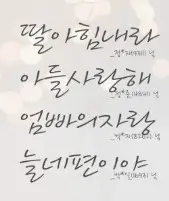 딸아힘내라
아들사랑해
엄빠의자랑
늘네편이야